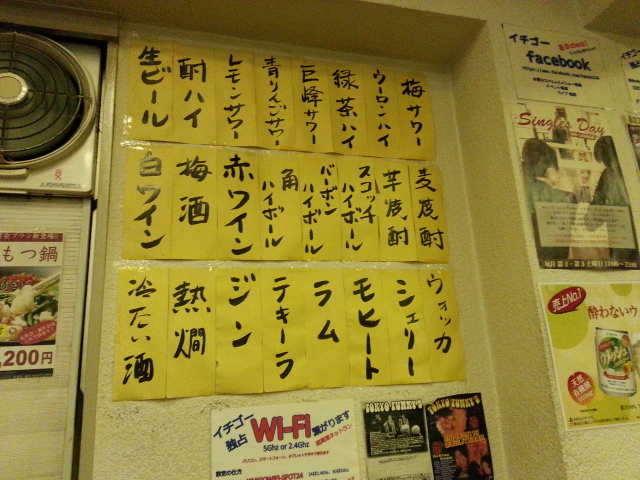 生ビール
酎ハイ
レモンサワー
青りんごサワー
巨峰サワー
緑茶ハイ
ウーロンハイ
梅サワー
白ワイン
梅酒
赤ワイン
角ハイボール
バーボンハイボール
スコッチハイボール
芋焼酎
麦焼酎
冷たい酒
熱燗
ジン
テキーラ
ラム
モヒート
シェリー
ウォッカ
イチゴー
facebook
Singles Day
毎月 第1・第3土曜日
売上No.1
酔わないウ
もつ鍋
,200円
イチゴー
独占
WI-Fi
繋がります
5Ghz or 2.4Ghz
TOKYO FUNKY'S
TOKYO FUNKY'S